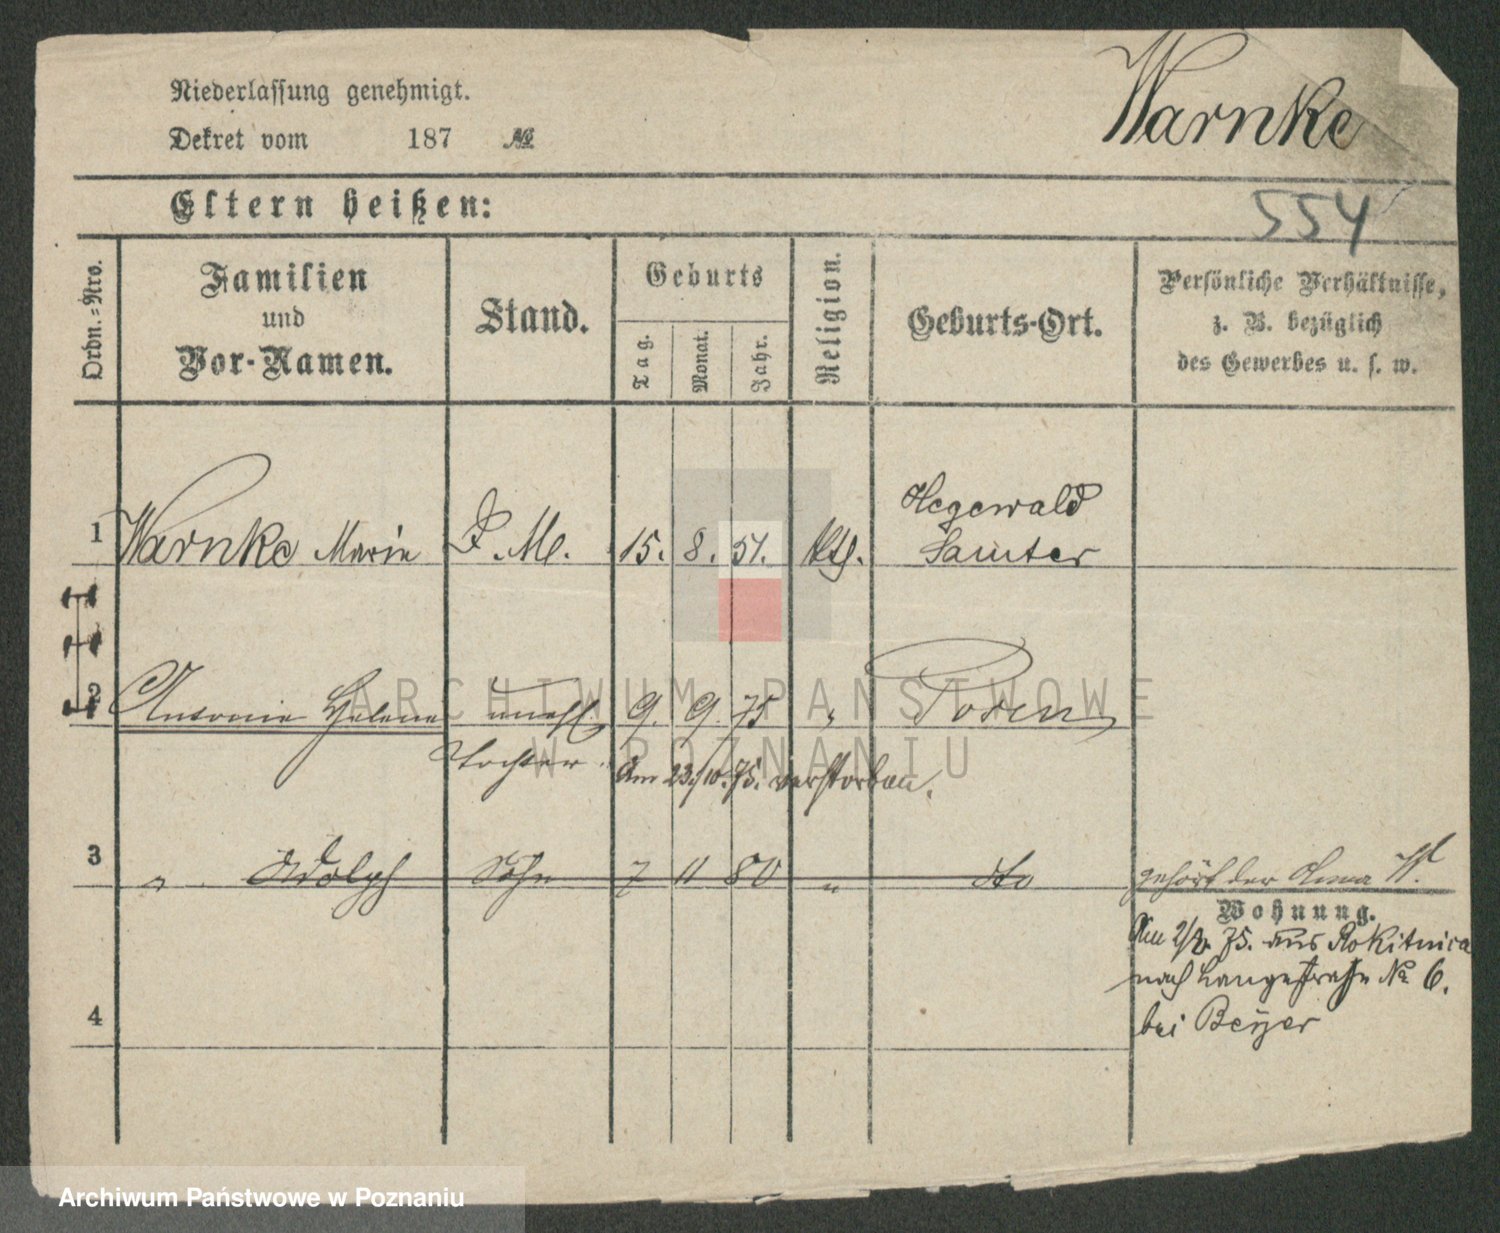 Niederlassung genehmigt.
Dekret vom 187 №
Warnke
Eltern heißen:
554
Ordn.-Nro.
Familien
und
Vor-Namen.
Stand.
Geburts
Tag.
Monat.
Jahr.
Religion.
Geburts-Ort.
Persönliche Verhältnisse,
z. B. bezüglich
des Gewerbes u. s. w.
Hegewald
1 Warnke Marie D. M. 15. 8. 51. kth. Samter
2 Antonie Helene unehl. 9. 9. 75 " Posen
Tochter Am 23./10. 75. verstorben.
3 " Adolph Sohn 7 11 80 " dto gehört der Anna W.
Wohnung.
Am 2/2. 75. aus Rokitnica
nach Langestraße No 6.
bei Beyer
4
ARCHIWUM PAŃSTWOWE
W POZNANIU
Archiwum Państwowe w Poznaniu